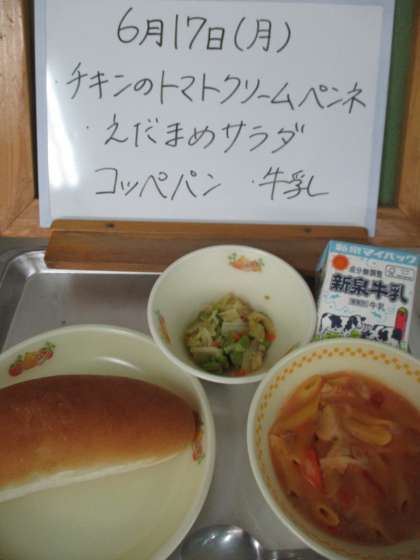 6月17日(月)
・チキンのトマトクリームペンネ
・えだまめサラダ
コッペパン ・牛乳
新泉マイパック
成分無調整
新泉牛乳
牛乳